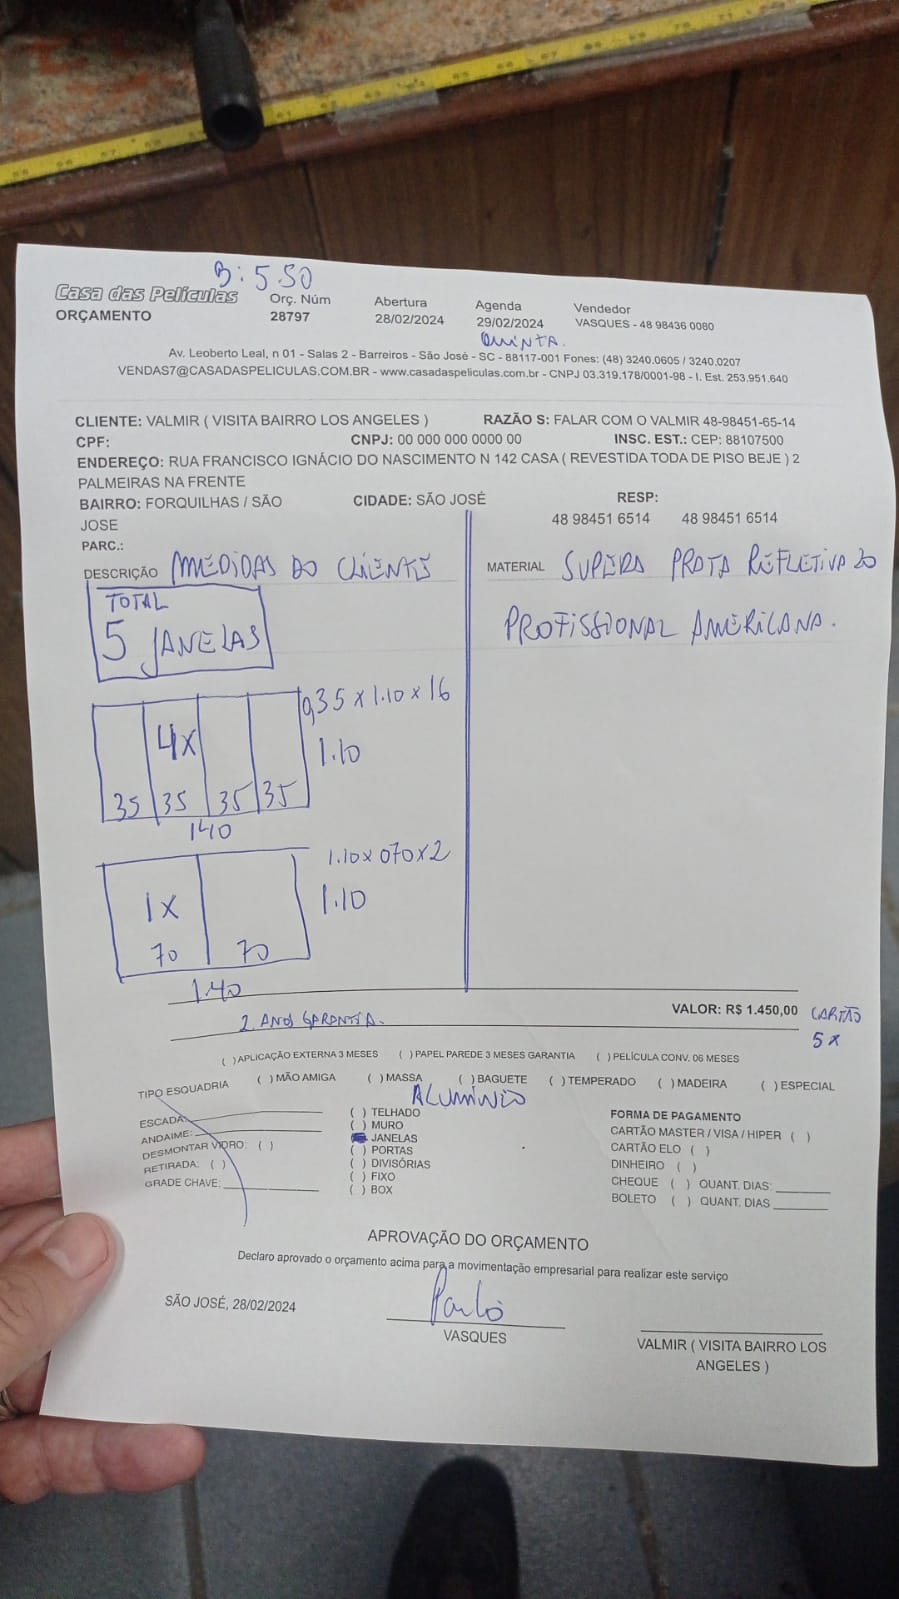 B: 5.50
Casa das Películas
ORÇAMENTO
Orç. Núm
28797
Abertura
28/02/2024
Agenda
29/02/2024
QUINTA.
Vendedor
VASQUES - 48 98436 0080
Av. Leoberto Leal, n 01 - Salas 2 - Barreiros - São José - SC - 88117-001 Fones: (48) 3240.0605 / 3240.0207
VENDAS7@CASADASPELICULAS.COM.BR - www.casadaspeliculas.com.br - CNPJ 03.319.178/0001-98 - I. Est. 253.951.640
CLIENTE: VALMIR ( VISITA BAIRRO LOS ANGELES ) RAZÃO S: FALAR COM O VALMIR 48-98451-65-14
CPF: CNPJ: 00 000 000 0000 00 INSC. EST.: CEP: 88107500
ENDEREÇO: RUA FRANCISCO IGNÁCIO DO NASCIMENTO N 142 CASA ( REVESTIDA TODA DE PISO BEJE ) 2
PALMEIRAS NA FRENTE
BAIRRO: FORQUILHAS / SÃO CIDADE: SÃO JOSÉ RESP:
JOSE 48 98451 6514 48 98451 6514
PARC.:
DESCRIÇÃO MEDIDAS DO CLIENTE
TOTAL
5 JANELAS
0,35 x 1.10 x 16
4x
1.10
35 35 35 35
140
1.10 x 070 x 2
1x
1.10
70 70
1.40
MATERIAL SUPERA PRATA REFLETIVA 20
PROFISSIONAL AMERICANA.
VALOR: R$ 1.450,00 CARTÃO
5 x
2 ANOS GARANTIA.
( ) APLICAÇÃO EXTERNA 3 MESES ( ) PAPEL PAREDE 3 MESES GARANTIA ( ) PELÍCULA CONV. 06 MESES
TIPO ESQUADRIA ( ) MÃO AMIGA ( ) MASSA ( ) BAGUETE ( ) TEMPERADO ( ) MADEIRA ( ) ESPECIAL
ALUMÍNIO
ESCADA:
ANDAIME:
DESMONTAR VIDRO: ( )
RETIRADA: ( )
GRADE CHAVE:
( ) TELHADO
( ) MURO
JANELAS
( ) PORTAS
( ) DIVISÓRIAS
( ) FIXO
( ) BOX
FORMA DE PAGAMENTO
CARTÃO MASTER / VISA / HIPER ( )
CARTÃO ELO ( )
DINHEIRO ( )
CHEQUE ( ) QUANT. DIAS:
BOLETO ( ) QUANT. DIAS
APROVAÇÃO DO ORÇAMENTO
Declaro aprovado o orçamento acima para a movimentação empresarial para realizar este serviço
SÃO JOSÉ, 28/02/2024
Paulo
VASQUES
VALMIR ( VISITA BAIRRO LOS
ANGELES )